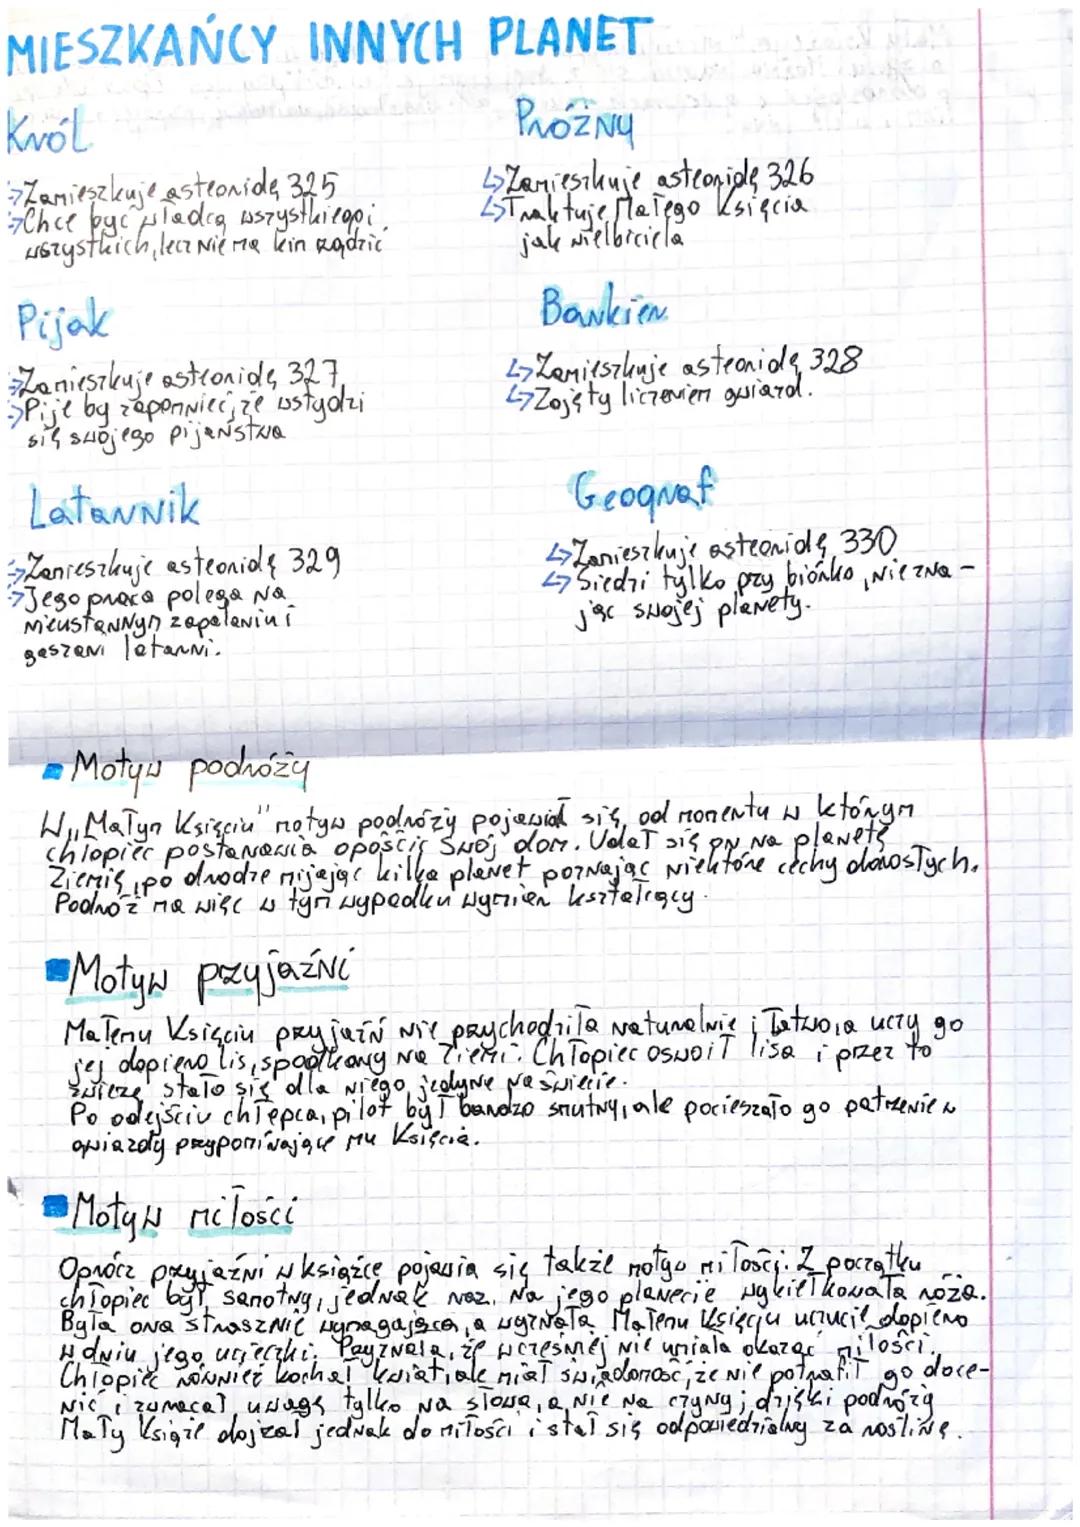 MIESZKAŃCY INNYCH PLANET
Król
↳Zamieszkuje asteroidę 325
↳Chce być władcą wszystkiego i
wszystkich, lecz nie ma kim rządzić
Próżny
↳Zamieszkuje asteroidę 326
↳Traktuje Małego Księcia
jak wielbiciela
Pijak
↳Zamieszkuje asteroidę 327
↳Pije by zapomnieć, że wstydzi
się swojego pijaństwa
Bankier
↳Zamieszkuje asteroidę 328
↳Zajęty liczeniem gwiazd.
Latarnik
↳Zamieszkuje asteroidę 329
↳Jego praca polega na
nieustannym zapalaniu i
gaszeni latarni.
Geograf
↳Zamieszkuje asteroidę 330
↳Siedzi tylko przy biórko, nie zna-
jąc swojej planety.
Motyw podróży
W „Małym Księciu" motyw podróży pojawiał się od momentu w którym
chłopiec postanawia opóścić swój dom. Udał się on na planetę
Ziemię, po drodze mijając kilka planet poznając niektóre cechy dorosłych.
Podróż ma więc w tym wypadku wymiar kształcący.
Motyw przyjaźni
Małemu Księciu przyjaźń nie przychodziła naturalnie i łatwo, a uczy go
jej dopiero lis, spotkany na Ziemi. Chłopiec oswoił lisa i przez to
zwierzę stało się dla niego jedyne na świecie.
Po odejściu chłopca, pilot był bardzo smutny, ale pocieszało go patrzenie w
gwiazdy przypominające mu Księcia.
Motyw miłości
Oprócz przyjaźni w książce pojawia się także motyw miłości. Z początku
chłopiec był samotny, jednak raz, na jego planecie wykiełkowała róża.
Była ona strasznie wymagająca, a wyznała Małemu Księciu uczucie dopiero
w dniu jego ucieczki. Przyznała, że wcześniej nie umiała okazać miłości.
Chłopiec również kochał kwiat, ale miał świadomość, że nie potrafił go doce-
nić i zwracał uwagę tylko na słowa, a nie na czyny; dzięki podróży
Mały Książe dojrzał jednak do miłości i stał się odpowiedzialny za roślinę.